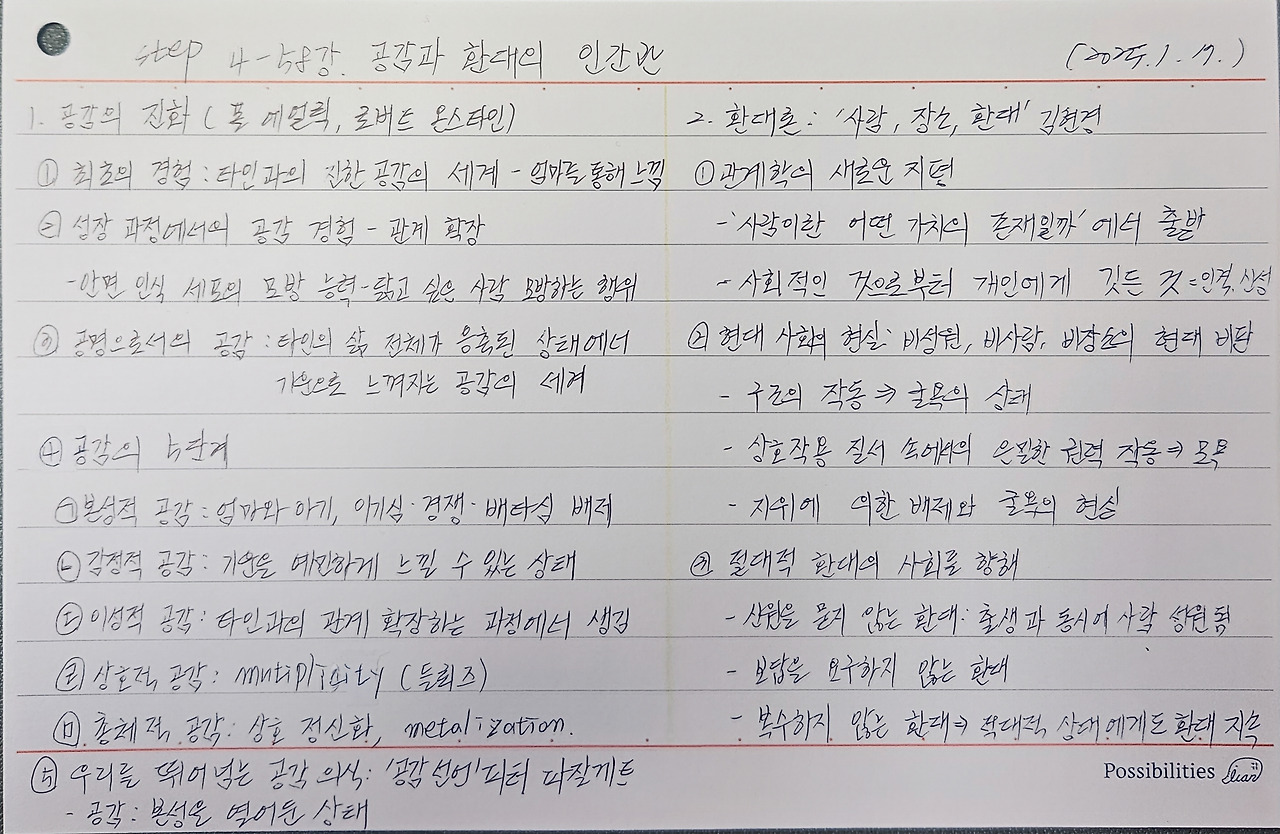 step 4-58강. 공감과 환대의 인간관
(2025.1.17.)
1. 공감의 진화 (폴 에얼릭, 로버트 온스타인)
① 최초의 경험 : 타인과의 진한 공감의 세계 - 엄마를 통해 느낌
② 성장 과정에서의 공감 경험 - 관계 확장
- 안면 인식 세포의 모방 능력 - 닮고 싶은 사람 모방하는 행위
③ 공명으로서의 공감 : 타인의 삶 전체가 응축된 상태에서
기운으로 느껴지는 공감의 세계
④ 공감의 5단계
㉠ 본성적 공감 : 엄마와 아기, 이기심·경쟁·배타심 배제
㉡ 감정적 공감 : 기운을 예민하게 느낄 수 있는 상태
㉢ 이성적 공감 : 타인과의 관계 확장하는 과정에서 생김
㉣ 상호적 공감 : mutiplicity (들뢰즈)
㉤ 총체적 공감 : 상호 정신화, metalization.
⑤ 우리를 뛰어넘는 공감 의식 : '공감 선언' 피터 바잘게트
- 공감 : 본성을 열어둔 상태
2. 환대론 : '사람, 장소, 환대' 김현경
① 관계학의 새로운 지평
- '사람이란 어떤 가치의 존재일까'에서 출발
- 사회적인 것으로부터 개인에게 깃든 것 = 인격, 신성
② 현대 사회의 현실 : 비성원, 비사람, 비장소의 현대 비판
- 구조의 작동 ⇒ 굴욕의 상태
- 상호작용 질서 속에서의 은밀한 권력 작동 ⇒ 모욕
- 지위에 의한 배제와 굴욕의 현실
③ 절대적 환대의 사회를 향해
- 신원을 묻지 않는 환대 : 출생과 동시에 사람 성원됨
- 보답을 요구하지 않는 환대
- 복수하지 않는 환대 ⇒ 적대적 상대에게도 환대 지속
Possibilities